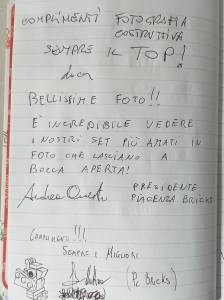 COMPLIMENTI FOTOGRAFIA
COSTRUTTIVA
SEMPRE IL TOP!
Luca
BELLISSIME FOTO!!
È INCREDIBILE VEDERE
I NOSTRI SET PIÙ AMATI IN
FOTO CHE LASCIANO A
BOCCA APERTA!
Andrea
PRESIDENTE
PIACENZA BRICKS
COMPLIMENTI!!!
SEMPRE I MIGLIORI
(Pc BRICKS)